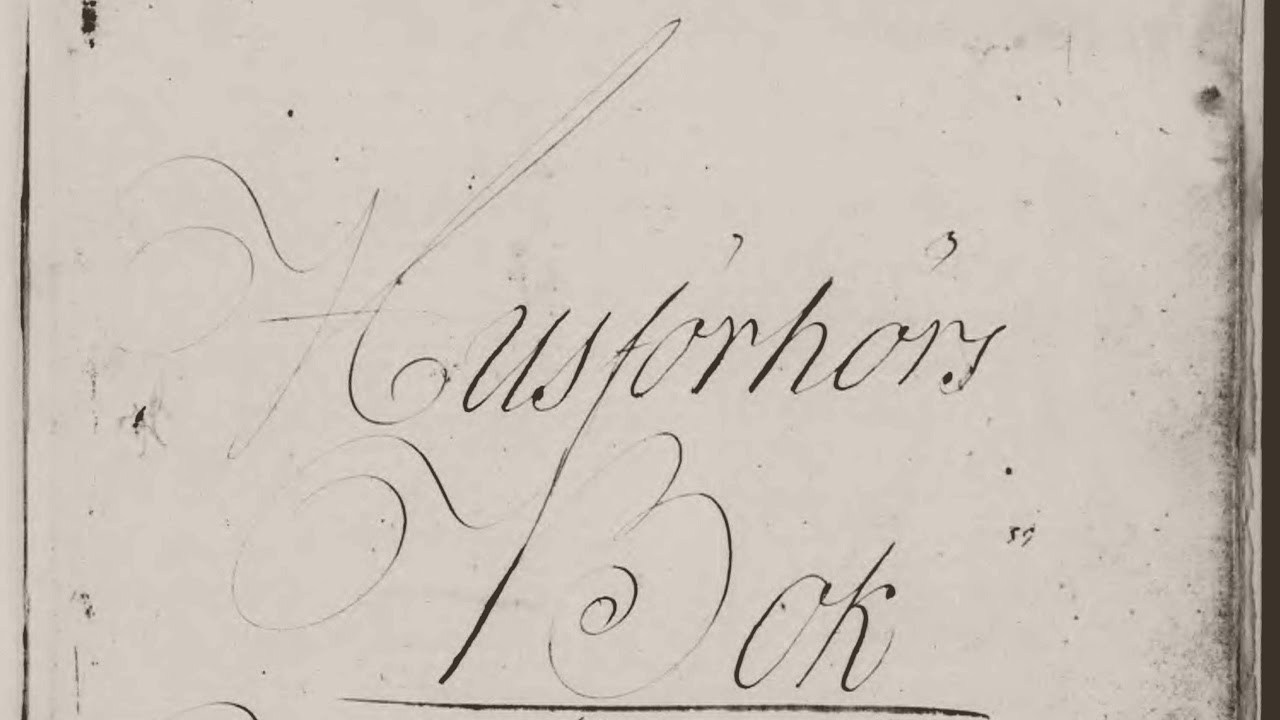 Husförhörs
Bok